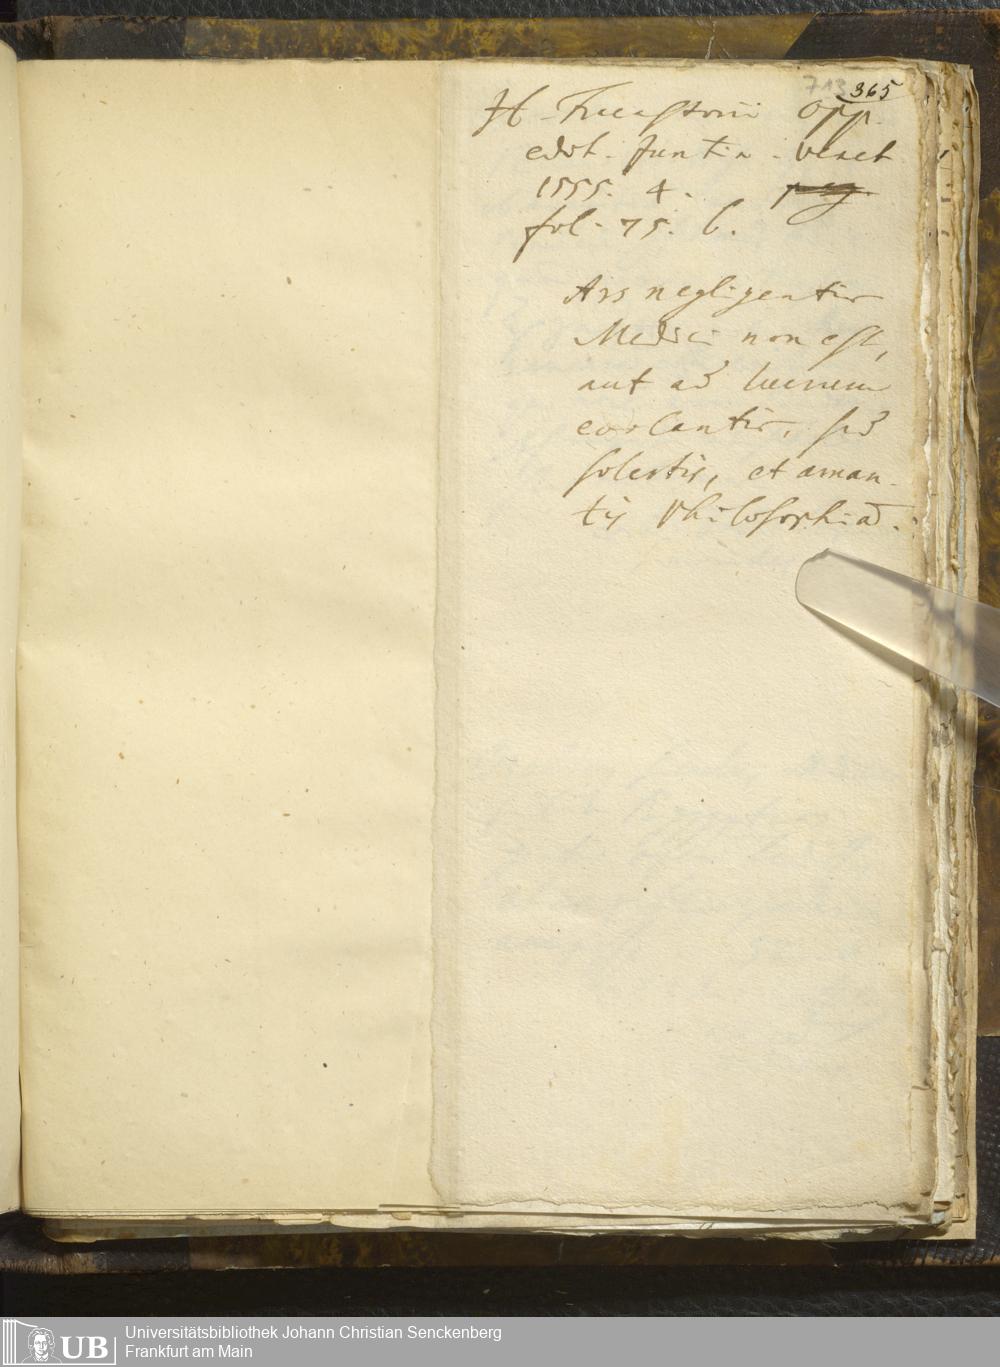 713 365
H. Fracastorii Opp.
edit. Juntin. Venet
1555. 4. pag.
fol. 75. b.
Ars negligentis
Medici non est,
aut ad lucrum
evolantis, sed
solertis, et aman-
tis Philosophiā.
UB
Universitätsbibliothek Johann Christian Senckenberg
Frankfurt am Main